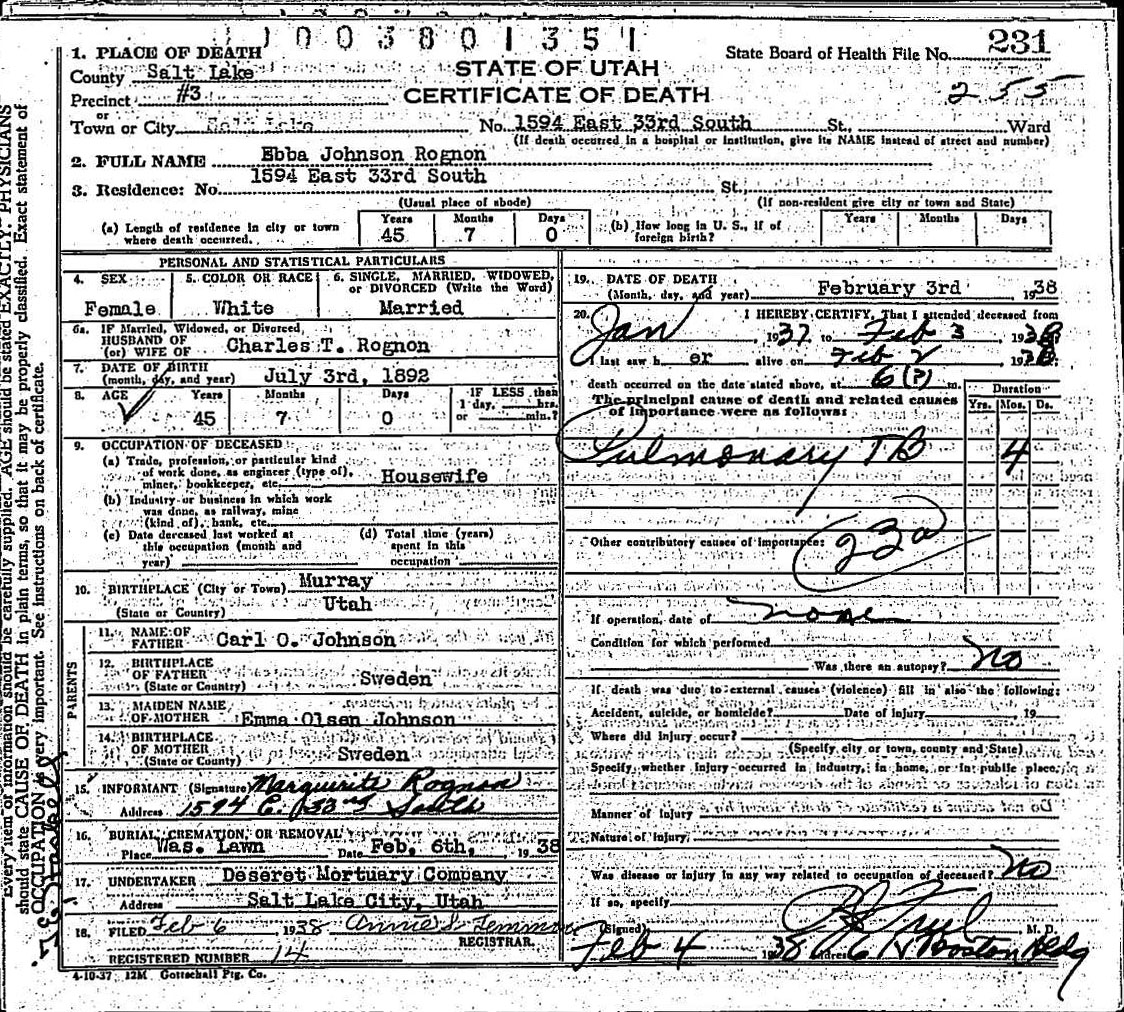 1003801351
State Board of Health File No. 231
255
STATE OF UTAH
CERTIFICATE OF DEATH
1. PLACE OF DEATH
County Salt Lake
Precinct #3
or
Town or City Salt Lake No. 1594 East 33rd South St., Ward
(If death occurred in a hospital or institution, give its NAME instead of street and number)
2. FULL NAME Ebba Johnson Rognon
3. Residence: No. 1594 East 33rd South St.
(Usual place of abode) (If non-resident give city or town and State)
(a) Length of residence in city or town where death occurred. Years 45 Months 7 Days 0
(b) How long in U. S., if of foreign birth? Years Months Days
PERSONAL AND STATISTICAL PARTICULARS
4. SEX Female
5. COLOR OR RACE White
6. SINGLE, MARRIED, WIDOWED, or DIVORCED (Write the Word) Married
6a. IF Married, Widowed, or Divorced,
HUSBAND OF
(or) WIFE OF Charles T. Rognon
7. DATE OF BIRTH
(month, day, and year) July 3rd, 1892
8. AGE Years 45 Months 7 Days 0 IF LESS than 1 day, hrs. or min.?
9. OCCUPATION OF DECEASED
(a) Trade, profession, or particular kind
of work done, as engineer (type of),
miner, bookkeeper, etc. Housewife
(b) Industry or business in which work
was done, as railway, mine
(kind of), bank, etc.
(c) Date deceased last worked at
this occupation (month and
year)
(d) Total time (years)
spent in this
occupation
10. BIRTHPLACE (City or Town) Murray
(State or Country) Utah
PARENTS
11. NAME OF FATHER Carl O. Johnson
12. BIRTHPLACE OF FATHER
(State or Country) Sweden
13. MAIDEN NAME OF MOTHER Emma Olsen Johnson
14. BIRTHPLACE OF MOTHER
(State or Country) Sweden
15. INFORMANT (Signature) Marguirite Rognon
Address 1594 E. 33rd South
16. BURIAL, CREMATION, OR REMOVAL
Place Was. Lawn Date Feb. 6th, 1938
17. UNDERTAKER Deseret Mortuary Company
Address Salt Lake City, Utah
18. FILED Feb 6 1938 Annie S. Lemmon
REGISTRAR.
REGISTERED NUMBER 14
4-10-37 12M Gottschall Ptg. Co.
19. DATE OF DEATH
(Month, day, and year) February 3rd 1938
20. I HEREBY CERTIFY, That I attended deceased from
Jan, 1937 to Feb 3, 1938
I last saw h er alive on Feb 2 1938
death occurred on the date stated above, at 6 (P) m.
The principal cause of death and related causes
of importance were as follows:
Duration
Yrs. Mos. Ds.
Pulmonary TB 4
Other contributory causes of importance: 23a
If operation, date of none
Condition for which performed
Was there an autopsy? No
If death was due to external causes (violence) fill in also the following:
Accident, suicide, or homicide? Date of injury 19
Where did injury occur?
(Specify city or town, county and State)
Specify whether injury occurred in industry, in home, or in public place.
Manner of injury
Nature of injury
Was disease or injury in any way related to occupation of deceased? No
If so, specify
(Signed) M. D.
Feb 4 1938 Address Boston Bldg
Every item of information should be carefully supplied. AGE should be stated EXACTLY. PHYSICIANS
should state CAUSE OF DEATH in plain terms, so that it may be properly classified. Exact statement of
OCCUPATION is very important. See instructions on back of certificate.